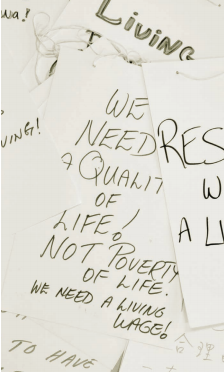 Living
wa!
WE
NEED
a QUALIT
OF
LIFE!
NOT POVERTY
OF LIFE.
WE NEED A LIVING
WAGE!
VING!
RES
W
A LI
TO HAVE
合理